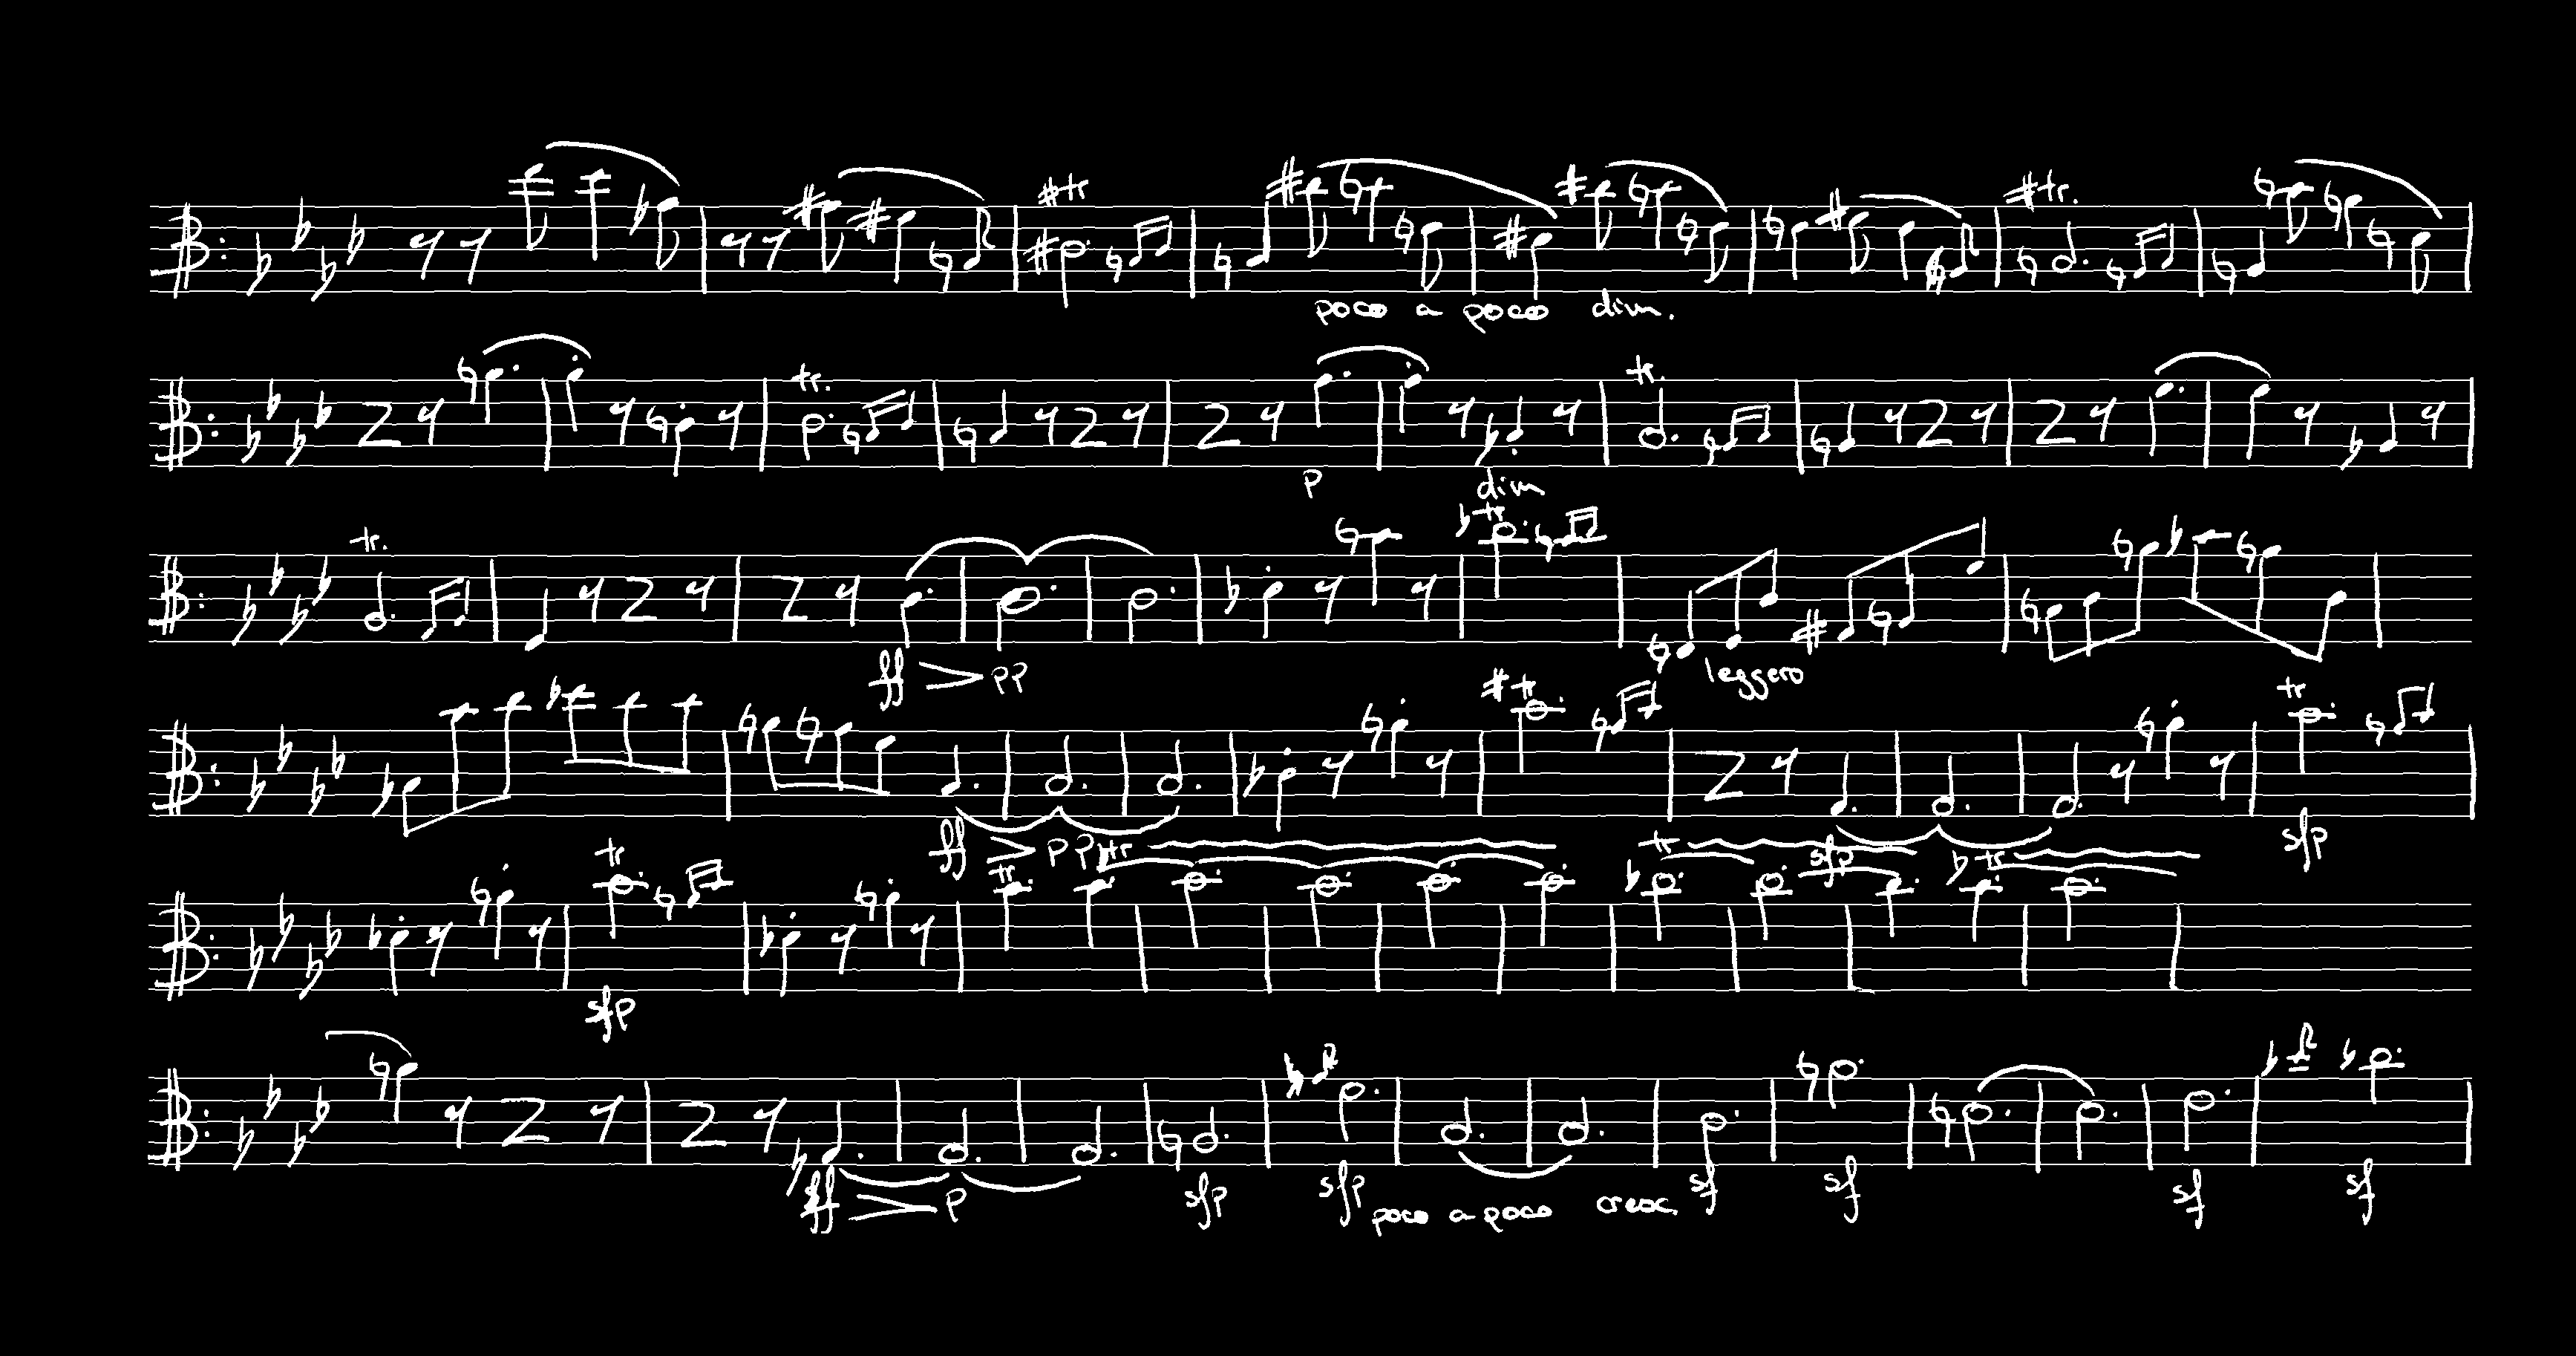 tr
tr.
poco a poco dim.
tr.
tr.
p
dim
tr.
tr
ff pp
leggero
tr
tr
ff pp
sfp
tr
tr
tr
tr
sfp
tr
sfp
ff p
sfp
sfp
poco a poco cresc.
sf
sf
sf
sf